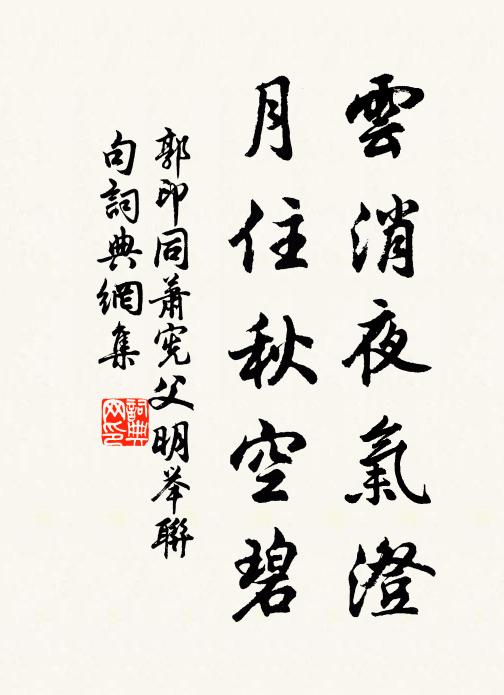 雲消夜氣澄
月住秋空碧
郭印同蕭宪父明举聯
句詞典網集
詞典
网印